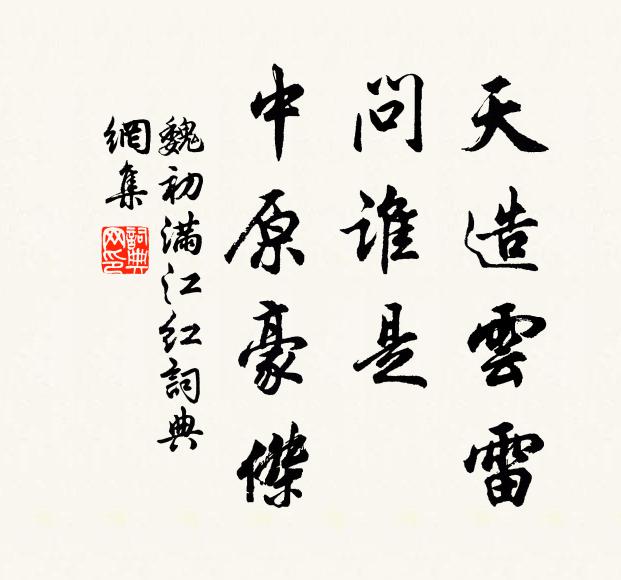 天造雲雷
問誰是
中原豪傑
魏初滿江红詞典
網集
詞典
网印